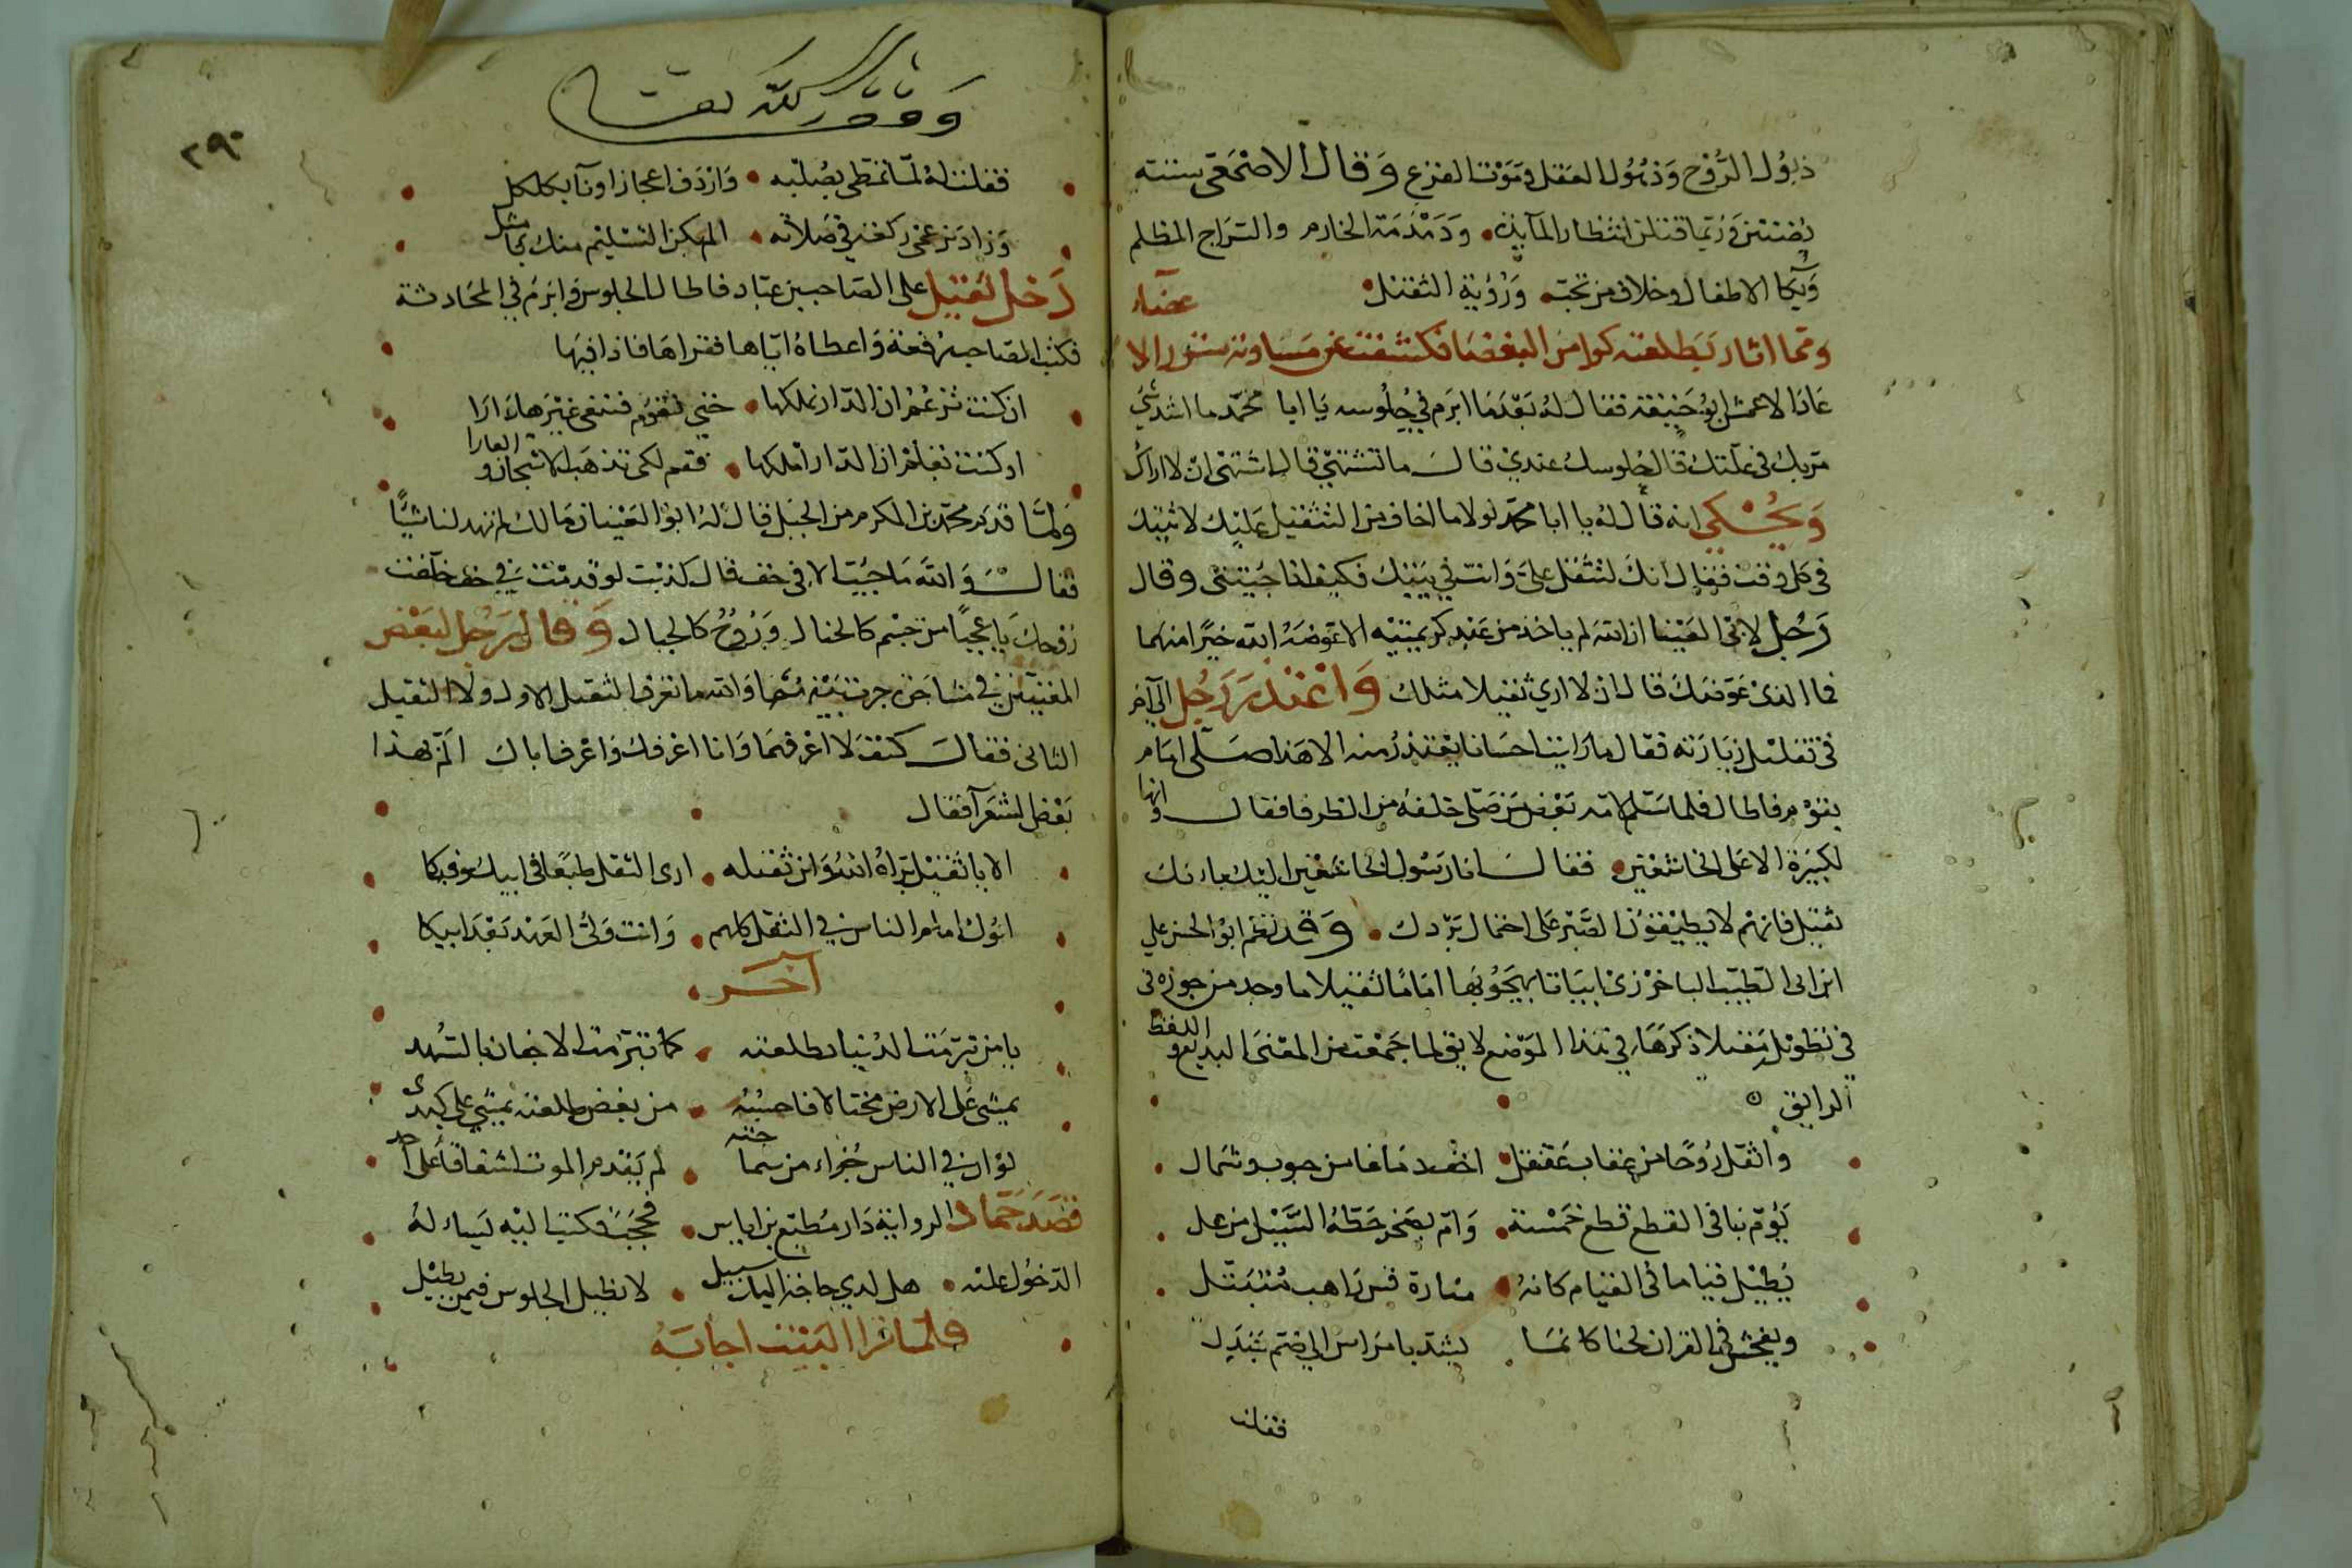 ذبول الروح وذهول العقل وموت الفزع وقال الاصمعي ستة
يضنين وربما قتلن انتظار المآيدة ودمدمة الخادم والسراج المظلم
وبكا الاطفال وخلاف من تحبه ورؤية الثقيل
ومما اثار بطلعته كوامن البغضا فكشفت عن مساوئه ستور الا عضاء
عاد الاعمش ابو حنيفة فقال له بعد ما ابرم في جلوسه يا ابا محمد ما اشد شي
مر بك في علتك قال جلوسك عندي قال ما تشتهي قال اشتهي ان لا اراك
ويحكي انه قال له يا ابا محمد لولا ما اخاف من التثقيل عليك لاتيتك
في كل وقت فقال انك لتثقل علي وانت في بيتك فكيف اذا جيتني وقال
رجل لابي العينا ان الله لم ياخذ من عبد كريمتيه الا عوضه الله خيرا منهما
فما الذي عوضك قال ان لا اري ثقيلا مثلك واعتذر رجل الي آخر
في تقليل زيارته فقال ما رايت احسانا يعتذر منه الا هذا صلى امام
بقوم فاطال فلما سلم لامه بعض من صلى خلفه من الظرفا فقال وانها
لكبيرة الا على الخاشعين فقال انا رسول الخاشعين اليك بانك
ثقيل فانهم لا يطيقون الصبر على احتمال بردك وقد نظم ابو الحسن علي
ابن ابي الطيب الباخرزي ابياتا يهجو بها اماما ثقيلا ما وجد من جوزه في
في تطويل مقيلا ذكرها في هذا الموضع لايق لما جمعت من المعنى البديع واللفظ
الرايق
واثقل روحا من عقاب عقنقل اخف دماغا من جنوب وشمال
يؤم بنا في القطع قطع خمسة وام بصخر حطه السيل من عل
يطيل قياما في القيام كانه منارة قس راهب متبتل
ويفحش في القران لحنا كانما يشد بامراس الي ضم يذبل
فقلت
ووو رلله لعت
٢٩٠
فقلت له لما تمطى بصلبه واردف اعجازا ونآ بكلكل
وزاد نزعمي ركعة في صلاته الم يكن التسليم منك بامثل
دخل ثقيل على الصاحب بن عباد فاطال الجلوس وابرم في المحادثة
فكتب الصاحب رقعة واعطاه اياها فقراها فاذا فيها
ان كنت تزعم ان الدار تملكها حتى نقوم فنبغى غيرها دارا
او كنت تعلم ان الدار املكها فقم لكي تذهب الاشجان والعارا
ولما قدم محمد بن المكرم من الجبل قال له ابو العينا مالك لم تهد لنا شيا
فقال والله ما جيت الا في خف قال كذبت لو قدمت في خف خفت
روحك يا عجبا من جسم كالخيال وروح كالجبال وقال رجل لبعض
المغنيين في مشاجرة جرت بينهما والله ما تعرف الثقيل الاول ولا الثقيل
الثاني فقال كيف لا اعرفهما وانا اعرفك واعرف اباك الم بهذا
بعض الشعرآ فقال
الا يا ثقيل براه الله وابن ثقيله ارى الثقل طبعا في ابيك وفيكا
ابوك امام الناس في الثقل كلهم وانت ولي العهد بعد ابيكا
آخر
يا من تبرمت الدنيا بطلعته كما تبرمت الاجفان بالسهد
يمشي على الارض مختالا فاحسبه من بغض طلعته يمشي على كبدي
لو ان في الناس جزاء من سماجته لم يقدم الموت اشفاقا على احد
قصد حماد الرواية دار مطيع بن اياس فحجب فكتب اليه يساله
الدخول عليه هل لذي حاجة اليك سبيل لا نطيل الجلوس فيمن يطيل
فلما قرا البيت اجابه